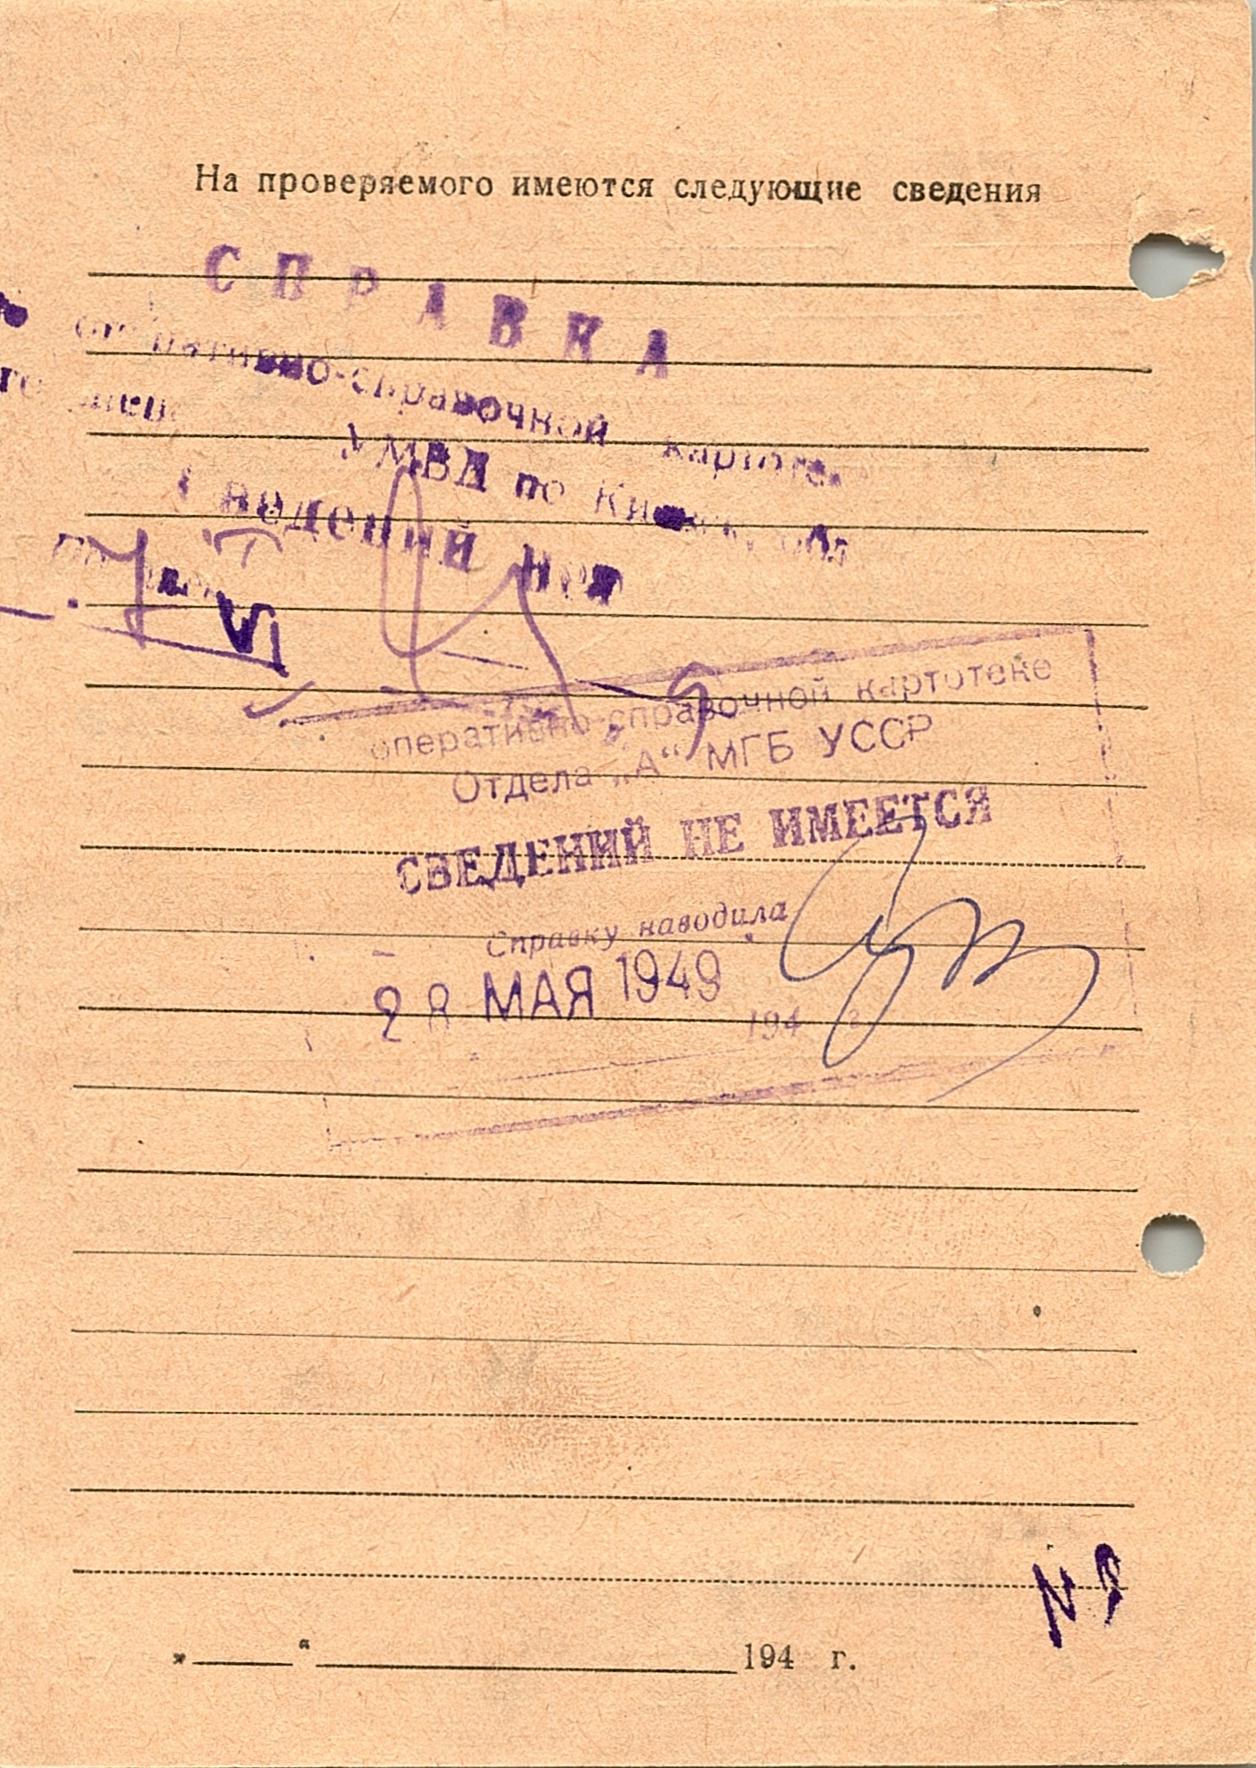 На проверяемого имеются следующие сведения
СПРАВКА
оперативно-справочной картоте
УМВД по
Сведений нет
оперативно-справочной картотеке
Отдела „А“ МГБ УССР
СВЕДЕНИЙ НЕ ИМЕЕТСЯ
Справку наводила
28 МАЯ 1949
194 г
„ “ 194 г.